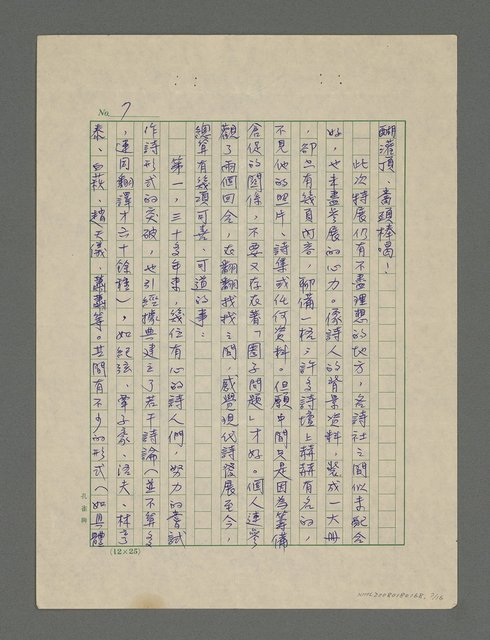 No. 7
醐灌頂、當頭棒喝！
此次特展仍有不盡理想的地方，各詩社之間似未配合
好，也未盡參展的心力。像詩人的背景資料，裝成一大冊
，卻只有幾頁內容，聊備一格；許多詩壇上赫赫有名的，
不見他的照片、詩集或任何資料。但願中間只是因為籌備
倉促的關係，不要又存在著「圈子問題」才好。個人連參
觀了兩個回合，在翻翻找找之間，感覺現代詩發展至今，
總算有幾項可喜、可道的事：
第一，三十多年來，幾位有心的詩人們，努力的嘗試
作詩形式的突破，也引經據典建立了若干詩論（並不算多
，連同翻譯才六十餘種），如紀弦、覃子豪、洛夫、林亨
泰、白萩、趙天儀、蕭蕭等。其間有不少的形式（如具體
孔雀牌
(12×25)
NMTL20080180168, 7/16